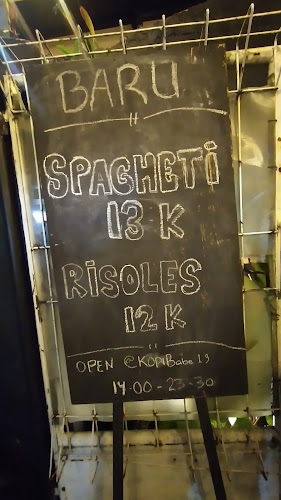 BARU
SPAGHETI
13 K
RISOLES
12 K
OPEN @KOPIBabe 19
14.00 - 23.30